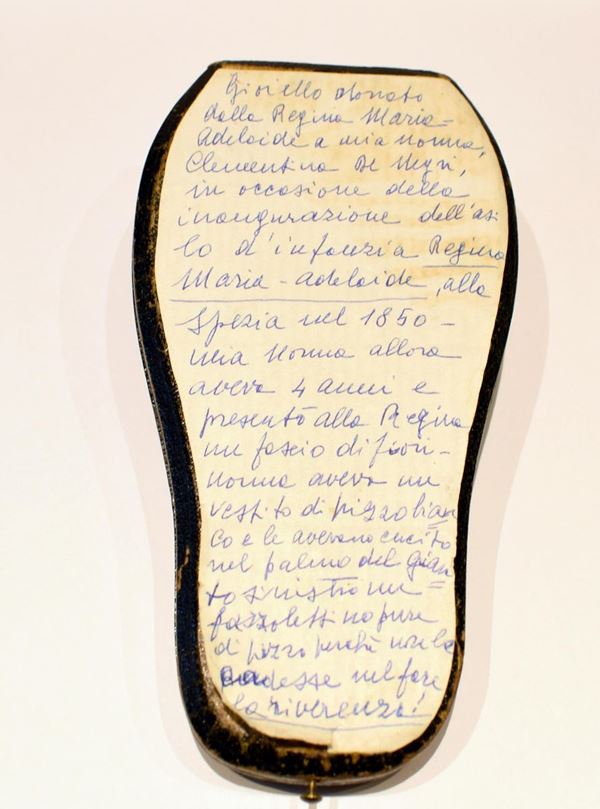 Gioiello donato
dalla Regina Maria-
Adelaide a mia nonna,
Clementina De Negri,
in occasione della
inaugurazione dell'asi
lo d'infanzia Regina
Maria-Adelaide, alla
Spezia nel 1850-
mia nonna allora
aveva 4 anni e
presentò alla Regina
un fascio di fiori-
nonna aveva un
vestito di pizzo bian
co e le avevano cucito
nel palmo del guan
to sinistro un
fazzolettino pure
di pizzo perché non le
cadesse nel fare
la riverenza!